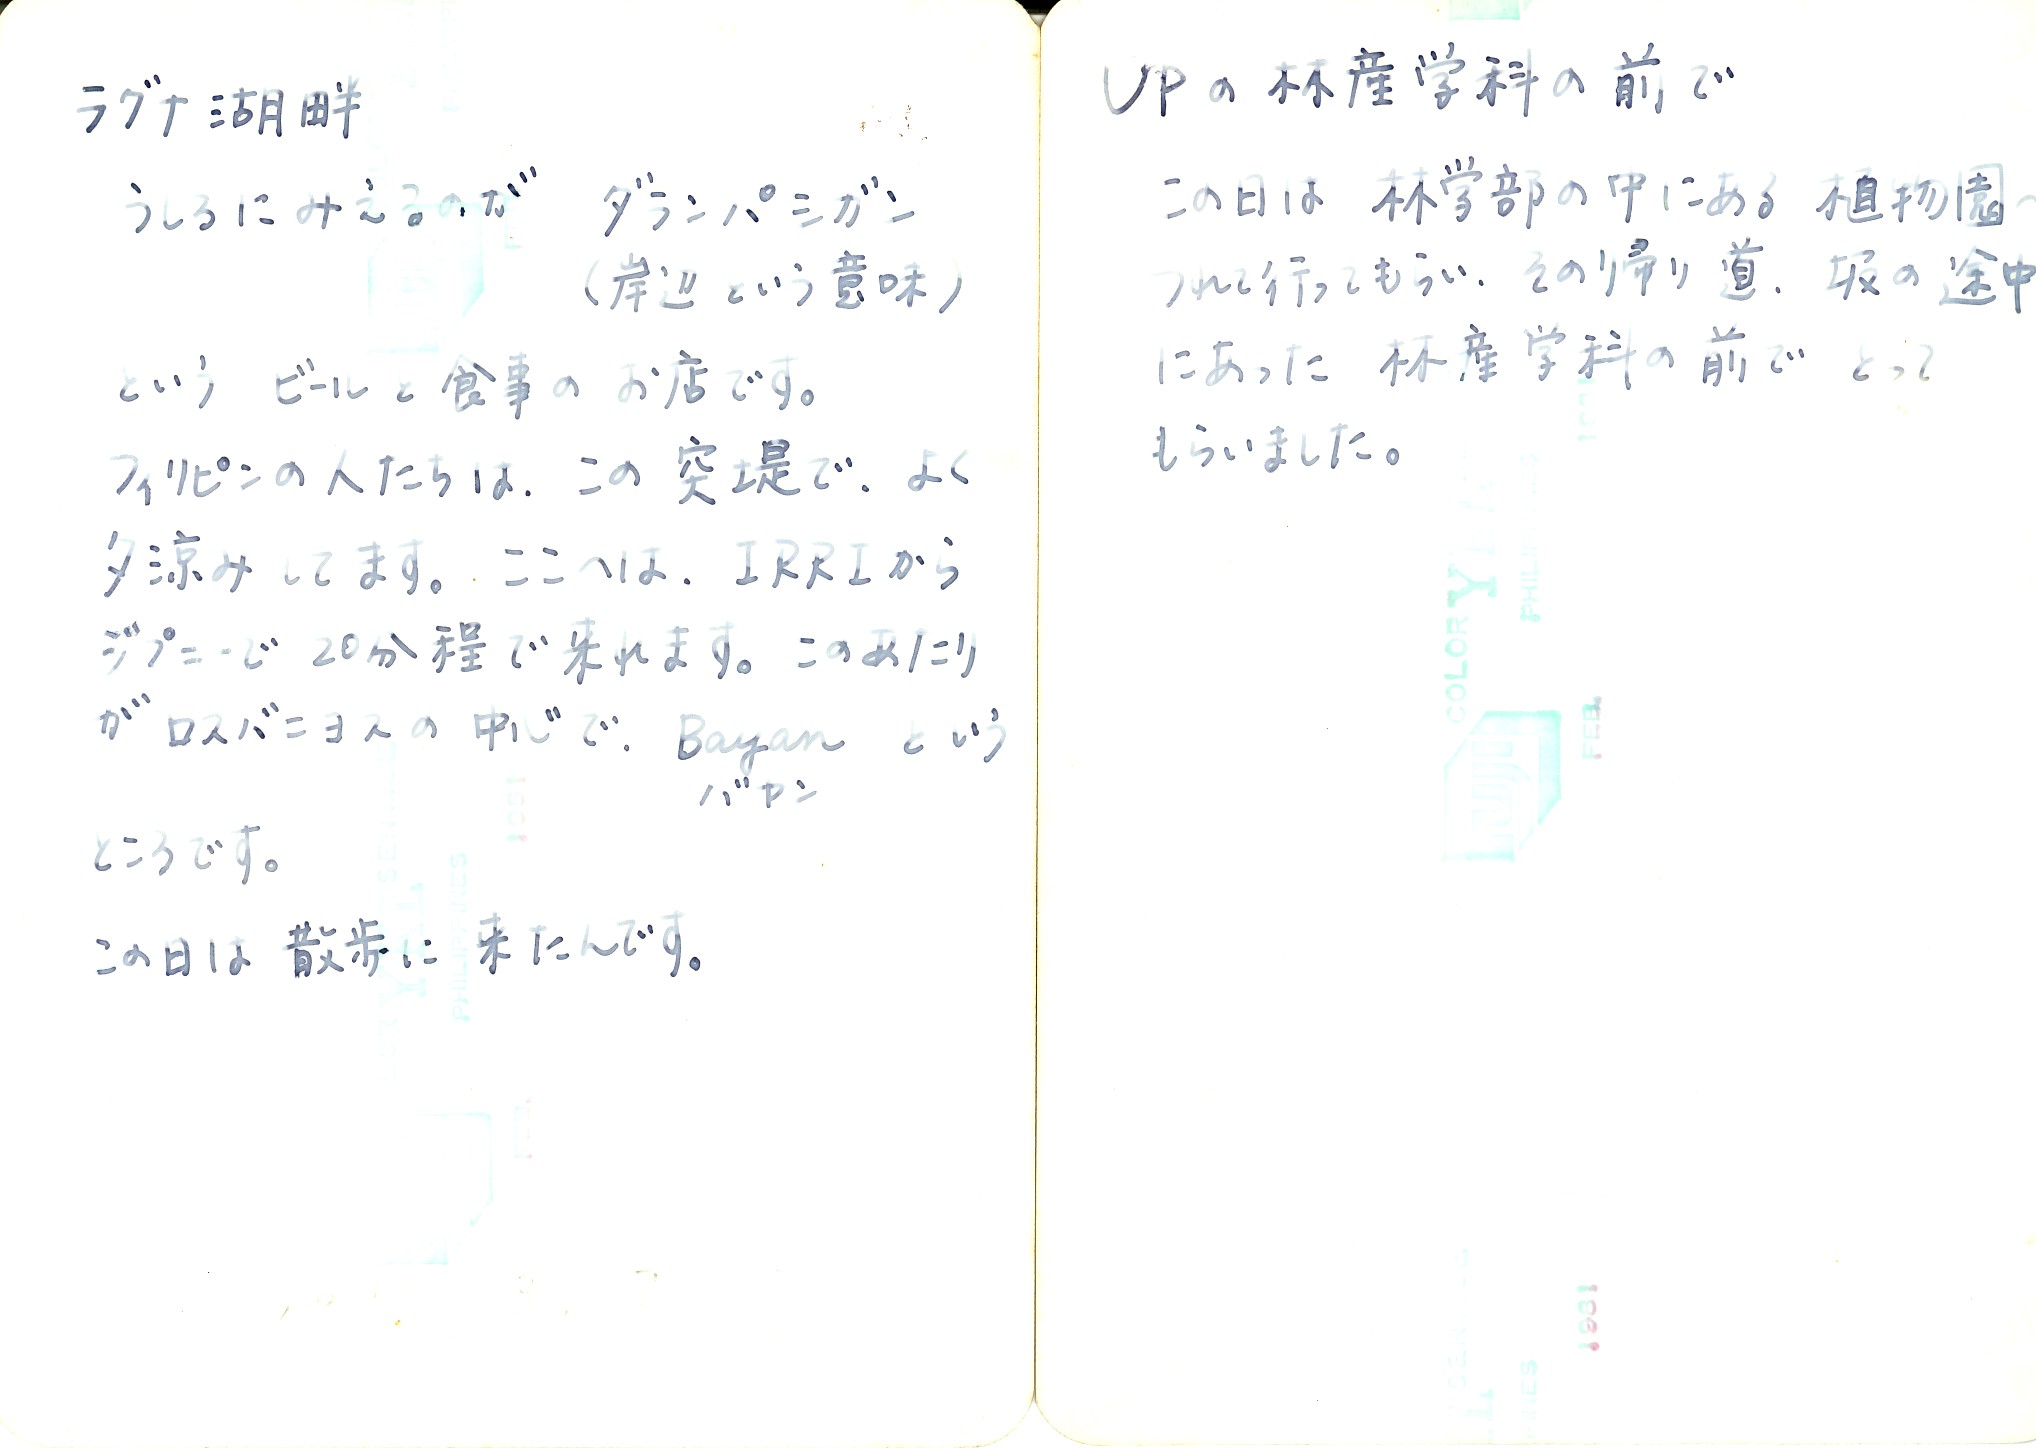 ラグナ湖畔
うしろにみえるのが ダランパシガン
(岸辺という意味)
という ビールと食事の お店です。
フィリピンの人たちは、この 突堤で、よく
夕涼みしてます。ここへは、IRRIから
ジプニーで 20分程で来れます。このあたり
がロスバニョスの 中心で、Bayan という
バヤン
ところです。
この日は 散歩に 来たんです。
UPの 林産学科の前で
この日は 林学部の中にある 植物園へ
つれて行ってもらい、その帰り道、坂の途中
にあった 林産学科の前で とって
もらいました。
COLOR
PHILIPPINES
FEB.
1981
FUJI
1981
PHILIPPINES